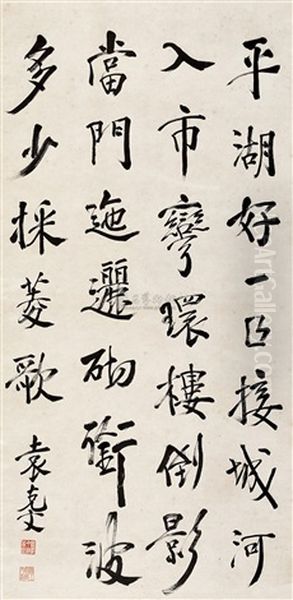 平湖好一匹接城河
入市彎環樓倒影
當門迤邐砌銜波
多少採菱歌
袁克文